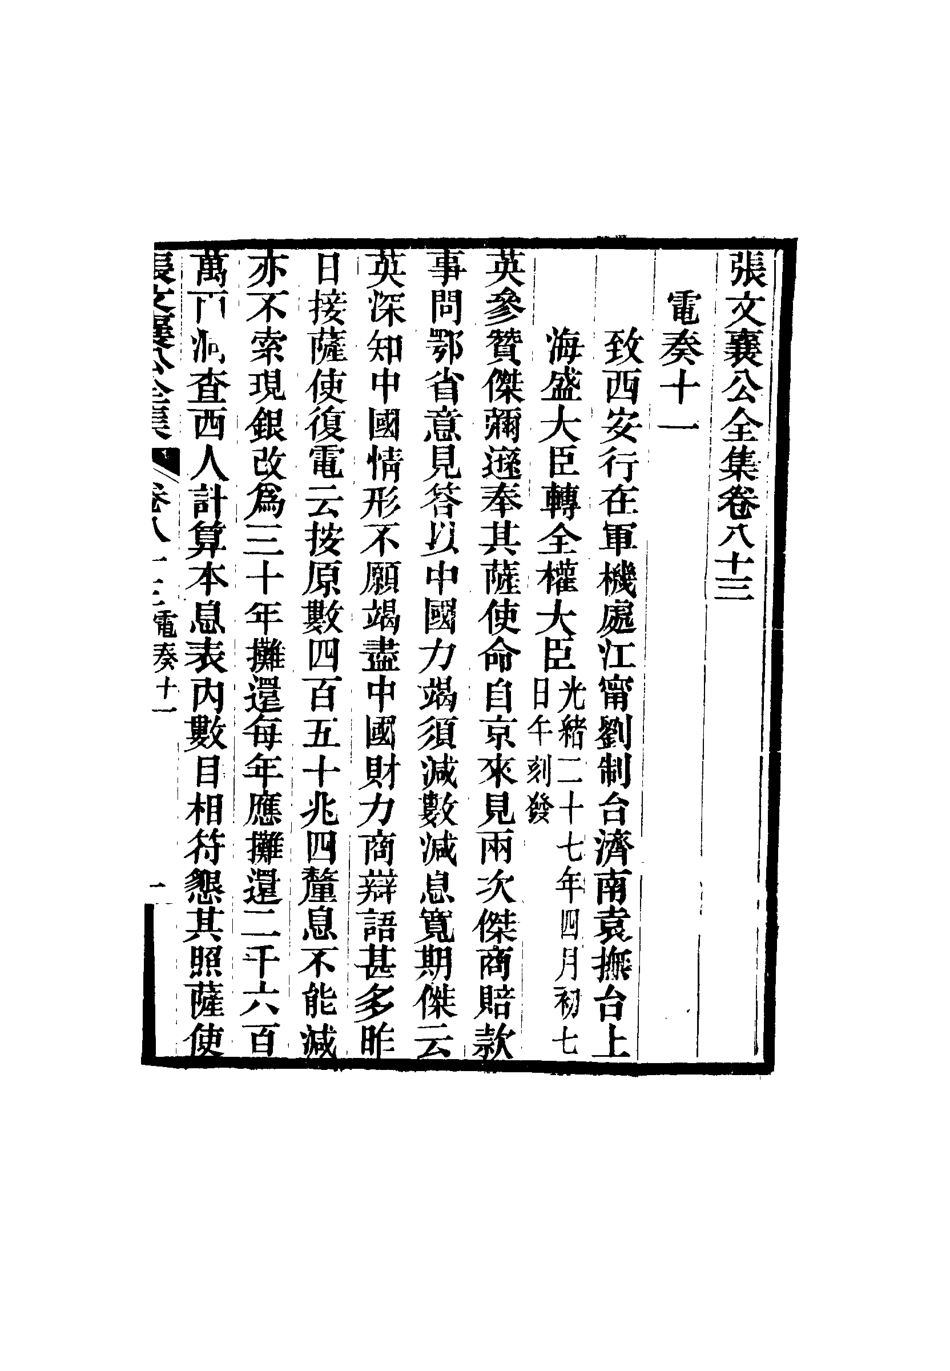 張文襄公全集卷八十三
電奏十一
致西安行在軍機處江甯劉制台濟南袁撫台上
海盛大臣轉全權大臣光緒二十七年四月初七
日午刻發
英參贊傑彌遜奉其薩使命自京來見兩次傑商賠款
事問鄂省意見答以中國力竭須減數減息寬期傑云
英深知中國情形不願竭盡中國財力商辯語甚多昨
日接薩使復電云按原數四百五十兆四釐息不能減
亦不索現銀改爲三十年攤還每年應攤還二千六百
萬兩洞查西人計算本息表內數目相符懇其照薩使
張文襄公全集 卷八十三 電奏十一 一